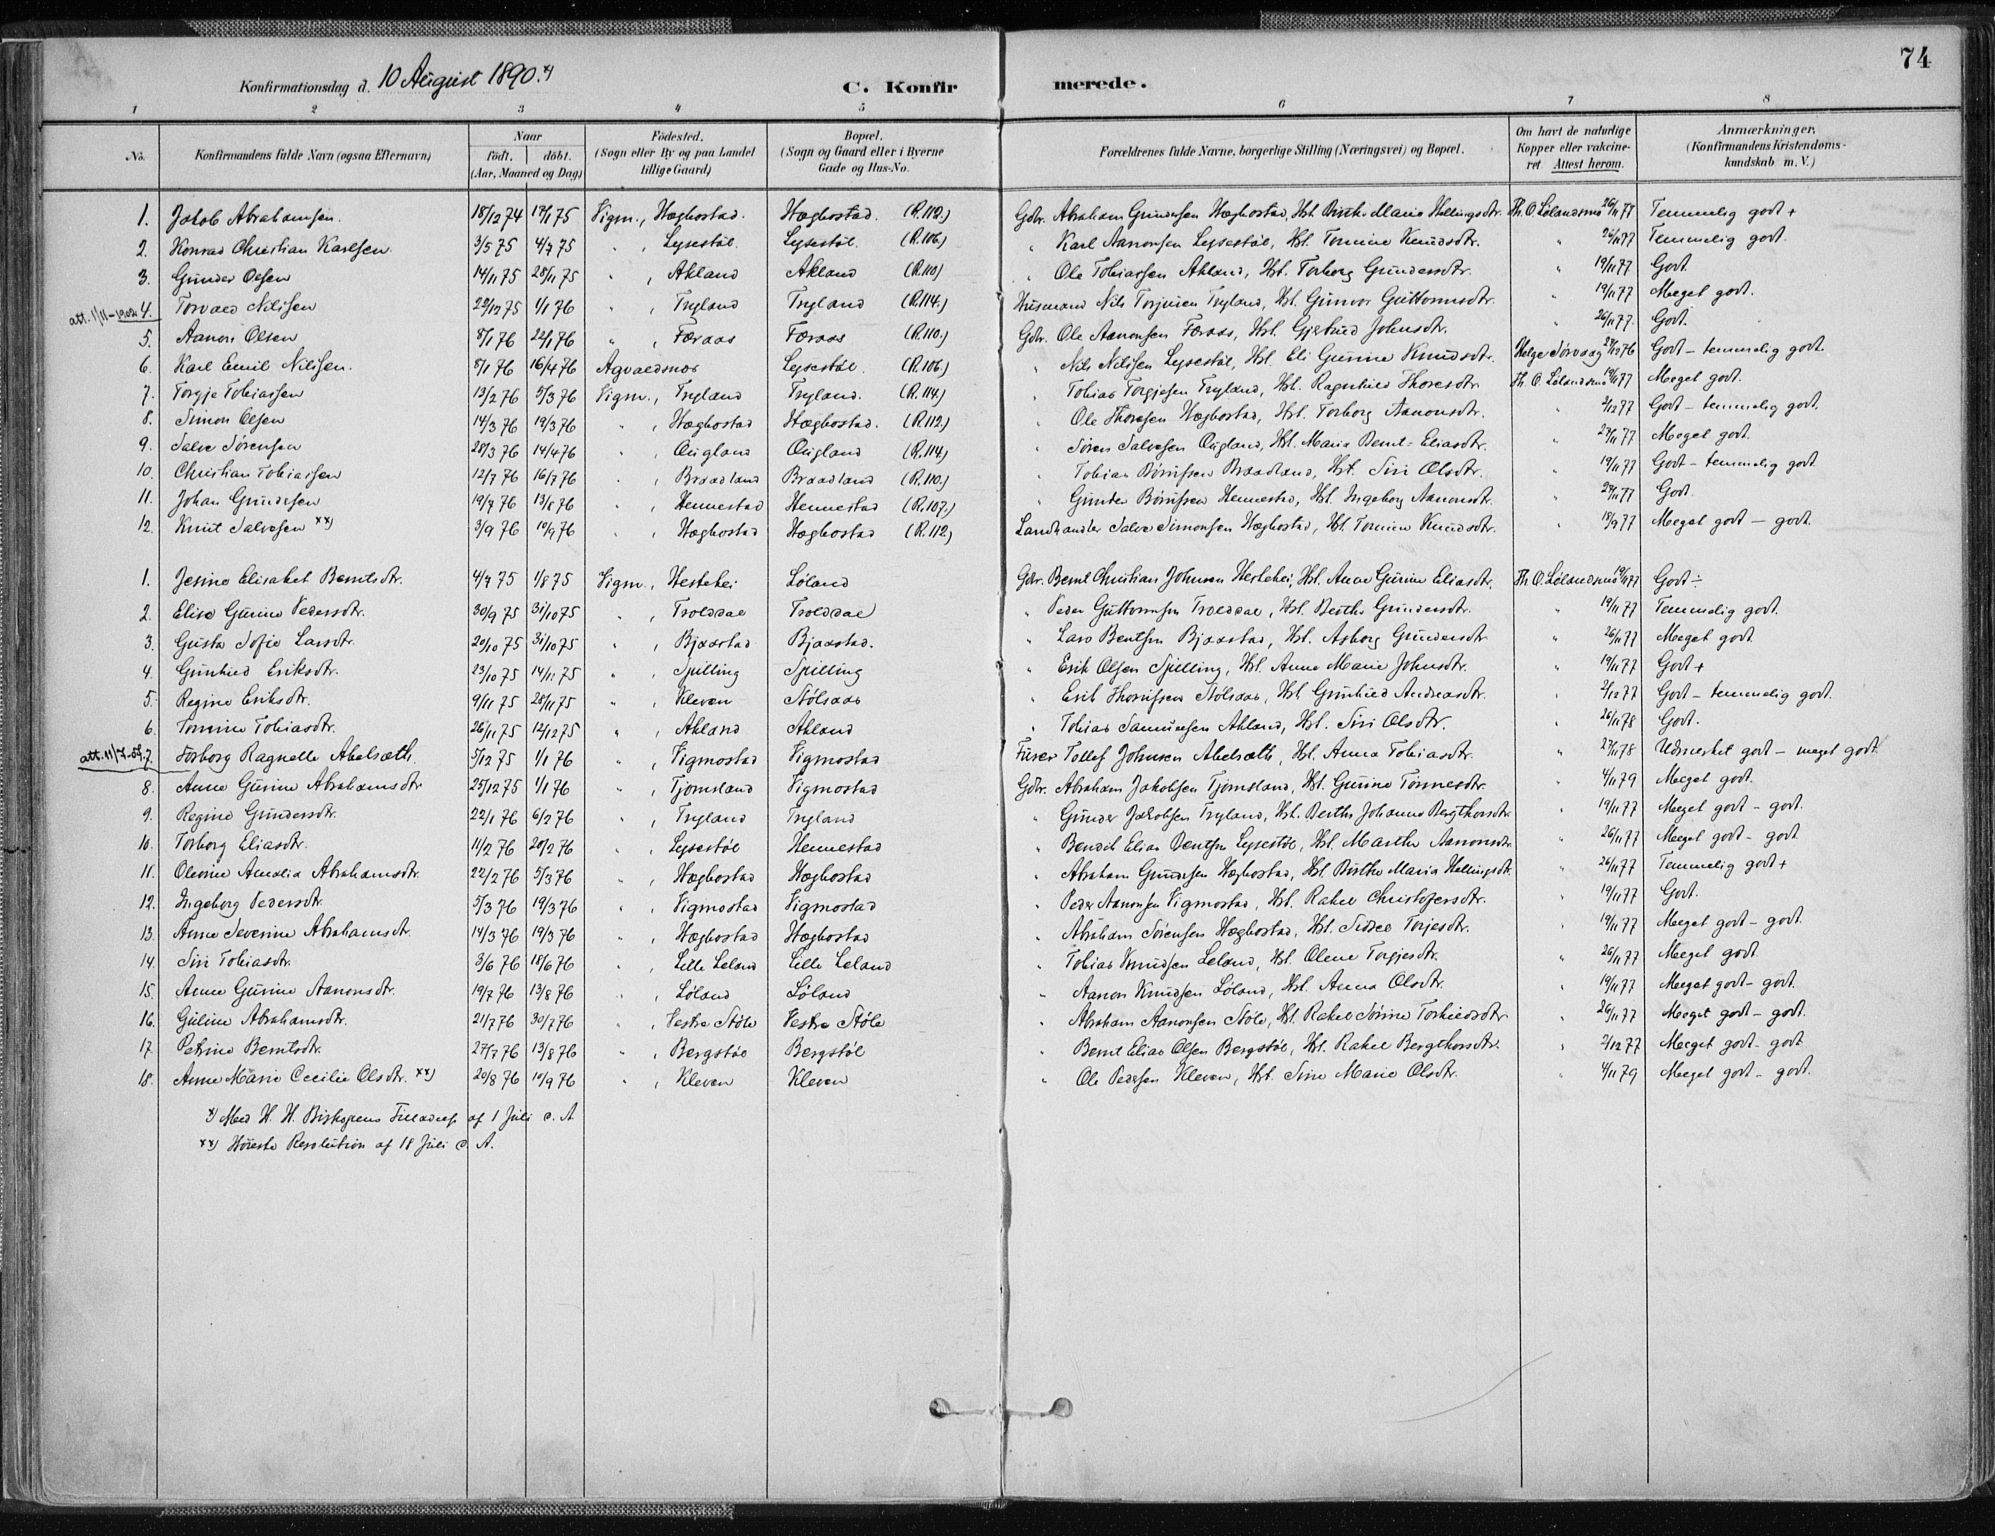 74
Konfirmationsdag d. 10 August 1890. x)
C. Konfirmerede.
1 2 3 4 5 6 7 8
No. Konfirmandens fulde Navn (ogsaa Efternavn) Naar født. døbt. (Aar, Maaned og Dag) Fødested. (Sogn eller By og paa Landet tillige Gaard) Bopæl. (Sogn og Gaard eller i Byerne Gade og Hus-No. Forældrenes fulde Navne, borgerlige Stilling (Næringsvei) og Bopæl. Om havt de naturlige Kopper eller vakcineret Attest herom. Anmærkninger. (Konfirmandens Kristendomskundskab m. V.)
1. Jakob Abrahamsen. 18/12 74 17/1 75 Vigm., Hægbostad. Hægbostad. (R.112.) Gdbr. Abraham Gundersen Hægbostad, Hst. Birthe Maria Hellingsdtr. Th. O. Lølandsmo 26/11 77 Temmelig godt +
2. Konrad Christian Karlsen 3/5 75 4/7 75 " , Lysestøl. Lysestøl. (R.106.) " Karl Aanonsen Lysestøl, Hst. Tomine Knudsdtr. " 26/11 77 Temmelig godt.
3. Gunder Olsen 14/11 75 28/11 75 " , Akland Akland (R.110) " Ole Tobiassen Akland, Hst. Torborg Gundersdtr. " 19/11 77 Godt.
att. 1/11-1902 4. Torvald Nilssen 22/12 75 1/1 76 " , Trygland Trygland (R.114.) Husmand Nils Torjusen Trygland, Hst. Gunvor Guttormsdtr. " 19/11 77 Meget godt.
5. Aanon Olsen 8/1 76 22/1 76 " , Færaas Færaas (R.110.) Gdbr. Ole Aanonsen Færaas, Hst. Gjertrud Johnsdtr. " 26/11 77. Godt.
6. Karl Emil Nilssen. 8/1 76 16/4 76 Agvaldsnes Lysestøl. (R.106.) " Nils Nilssen Lysestøl, Hst. Eli Gurine Knudsdtr. Helge Sørvaag 27/10 76 Godt - temmelig godt.
7. Torgje Tobiassen 13/2 76 5/3 76 Vigm., Trygland Trygland. (R.114.) " Tobias Torgjesen Trygland, Hst. Ragnhild Thoresdtr. Th. O. Lølandsmo 19/11 77 Meget godt.
8. Simon Olsen 14/3 76 19/3 76 " , Hægbostad Hægbostad. (R.112.) " Ole Thoresen Hægbostad, Hst. Torborg Aanonsdtr. " 2/12 77 Godt - temmelig godt.
9. Salve Sørensen 28/3 76 14/4 76 " , Augland Augland (R.114.) " Søren Salvesen Augland, Hst. Maria Bernt-Eliasdtr. " 27/11 77 Meget godt.
10. Christian Tobiassen 12/7 76 16/7 76 " , Braadland Braadland (R.110.) " Tobias Børufsen Braadland, Hst. Siri Olsdtr. " 19/11 77 Godt - temmelig godt
11. Johan Gundersen 19/7 76 13/8 76 " , Hennestad Hennestad (R.107.) " Gunder Børufsen Hennestad, Hst. Ingeborg Aanonsdtr. " 27/11 77 Godt.
12. Knut Salvesen xx) 3/9 76 10/9 76 " , Hægbostad Hægbostad (R.112.) Landhandler Salve Simonsen Hægbostad, Hst. Tomine Knudsdtr. " 18/9 77 Meget godt - godt.
1. Jesine Elisabet Berntsdtr. 4/7 75 1/8 75 Vigm., Hestehei Løland Gdbr. Bernt Christian Johnsen Hestehei, Hst. Anne Gurine Eliasdtr. Th. O. Lølandsmo 19/11 77 Godt ÷
2. Elise Gurine Pedersdtr. 30/9 75 31/10 75 " , Troldsal Troldsal " Peder Guttormsen Troldsal, Hst. Berthe Gundersdtr. " 19/11 77 Temmelig godt.
3. Gusta Sofie Larsdtr. 20/10 75 31/10 75 " , Bjaastad Bjaastad. " Lars Bentsen Bjaastad, Hst. Asborg Gundersdtr " 26/11 77 Meget godt
4. Gunhild Eriksdtr. 23/10 75 14/11 75 " , Spilling Spilling " Erik Olsen Spilling, Hst. Anne Marie Johnsdtr. " 19/11 77 Godt +
5. Regine Eriksdtr. 9/11 75 28/11 75 " , Kleven Stølsaas " Erik Thorufsen Stølsaas, Hst. Gunhild Andreasdtr. " 2/12 77 Godt - temmelig godt.
6. Tomine Tobiasdtr. 26/11 75 12/12 75 " , Akland Akland " Tobias Samuelsen Akland, Hst. Siri Olsdtr. " 26/11 78 Godt.
att. 11/7-05. 7. Torborg Ragnelle Abelsæth. 5/12 75 1/1 76 " , Vigmostad Vigmostad Furer Tollef Johnsen Abelsæth, Hst. Anna Tobiasdtr. " 27/11 78 Udmerket godt - meget godt.
8. Anne Gurine Abrahamsdtr 25/12 75 1/1 76 " , Tjomsland Vigmostad Gdbr. Abraham Jakobsen Tjomsland, Hst. Gurine Tønnesdtr. " 4/11 79 Meget godt.
9. Regine Gundersdtr. 22/1 76 6/2 76 " , Trygland Trygland " Gunder Jakobsen Trygland, Hst. Berthe Johanne Bergthorsdtr. " 19/11 77 Meget godt - godt.
10. Torborg Eliasdtr. 11/2 76 20/2 76 " , Lysestøl Hennestad " Bendik Elias Bentsen Lysestøl, Hst. Marthe Aanonsdtr. " 26/11 77 Meget godt - godt
11. Olevine Amalia Abrahamsdtr. 22/2 76 5/3 76 " , Hægbostad Hægbostad " Abraham Gundersen Hægbostad, Hst. Birthe Maria Hellingsdtr. " 26/11 77 Temmelig godt +
12. Ingeborg Pedersdtr. 5/3 76 19/3 76 " , Vigmostad Vigmostad " Peder Aanonsen Vigmostad, Hst. Rakel Christofersdtr. " 19/11 77 Godt.
13. Anne Severine Abrahamsdtr. 14/3 76 19/3 76 " , Hægbostad Hægbostad " Abraham Sørensen Hægbostad, Hst. Sidsel Torjesdtr. " 19/11 77 Meget godt - godt.
14. Siri Tobiasdtr. 3/6 76 18/6 76 " , Lille Leland Lille Leland " Tobias Knudsen Leland, Hst. Olene Torgjesdtr. " 26/11 77 Meget godt
15. Anne Gurine Aanonsdtr. 19/7 76 13/8 76 " , Løland Løland " Aanon Knudsen Løland, Hst. Anna Olsdtr. " 19/11 77 Meget godt - godt.
16. Guline Abrahamsdtr. 21/7 76 30/7 76 " , Vestre Støle Vestre Støle " Abraham Aanonsen Støle, Hst. Rakel Sørine Torkildsdtr " 26/11 77 Meget godt - godt.
17. Petrine Berntsdtr. 27/7 76 13/8 76 " , Bergstøl Bergstøl " Bernt Elias Olsen Bergstøl, Hst. Rakel Bergthorsdtr. " 2/12 77 Meget godt - godt
18. Anne Marie Cecilie Olsdtr. xx) 20/8 76 10/9 76 " , Kleven Kleven " Ole Pedersen Kleven, Hst. Sine Marie Olsdtr. " 4/11 79 Meget godt - godt.
x) Med H. H. Biskopens Tilladelse af 1 Juli d. A
xx) Høieste Resolution af 18 Juli d. A.